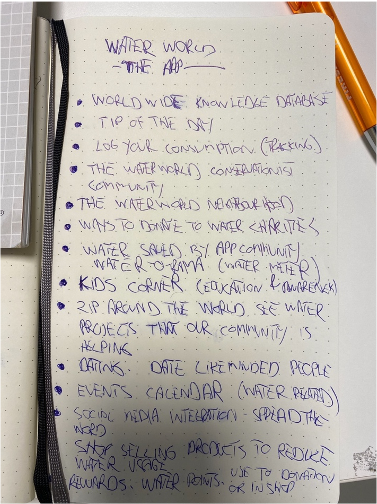 WATER WORLD
- THE APP -
• WORLD WIDE KNOWLEDGE DATABASE
• TIP OF THE DAY
• LOG YOUR CONSUMPTION. (TRACKING.)
• THE WATERWORLD CONSERVATIONIST
COMMUNITY
• THE WATERWORLD NEIGHBOURHOOD
• WAYS TO DONATE TO WATER CHARITIES
• WATER SAVED BY APP COMMUNITY
WATER-O-RAMA (WATER METER)
• KIDS CORNER (EDUCATION & AWARENESS)
• ZIP AROUND THE WORLD. SEE WATER
PROJECTS THAT OUR COMMUNITY IS
HELPING
• DATING. DATE LIKEMINDED PEOPLE
• EVENTS CALENDAR (WATER RELATED)
• SOCIAL MEDIA INTEGRATION - SPREAD THE
WORD
SHOP SELLING PRODUCTS TO REDUCE
WATER USAGE
REWARDS. WATER POINTS. USE TO DONATION
OR IN SHOP